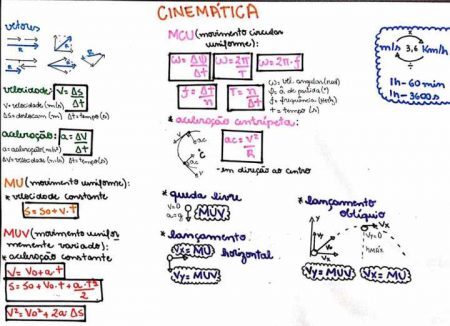 CINEMÁTICA
vetores
velocidade: V = ΔS/Δt
V = velocidade (m/s)
ΔS = deslocam (m) Δt = tempo (s)
aceleração: a = ΔV/Δt
a = aceleração (m/s²)
ΔV = velocidade (m/s) Δt = tempo (s)
MU (movimento uniforme):
* velocidade constante
S = So + V.t
MUV (movimento unifor
memente variado):
* aceleração constante
V = Vo + a.t
S = So + Vo.t + a.t²/2
V² = Vo² + 2a ΔS
MCU (movimento circular
uniforme):
ω = Δψ/Δt ω = 2π/T ω = 2π.f
f = n T = Δt/n
ω = vel. angular (rad)
f = frequência (Hertz)
t = tempo (s)
* aceleração centrípeta:
V ac
V ac
C
ac = V²/R
- em direção ao centro
* queda livre
V=0
a=g
MUV
* lançamento
horizontal
Vx = MU
Vy = MUV
* lançamento
oblíquo
Y V Vy Vx
Vy = 0
Vx
hmáx
Vy = MUV Vx = MU
x
m/s 3,6 Km/h
÷
1h - 60 min
1h - 3600 s